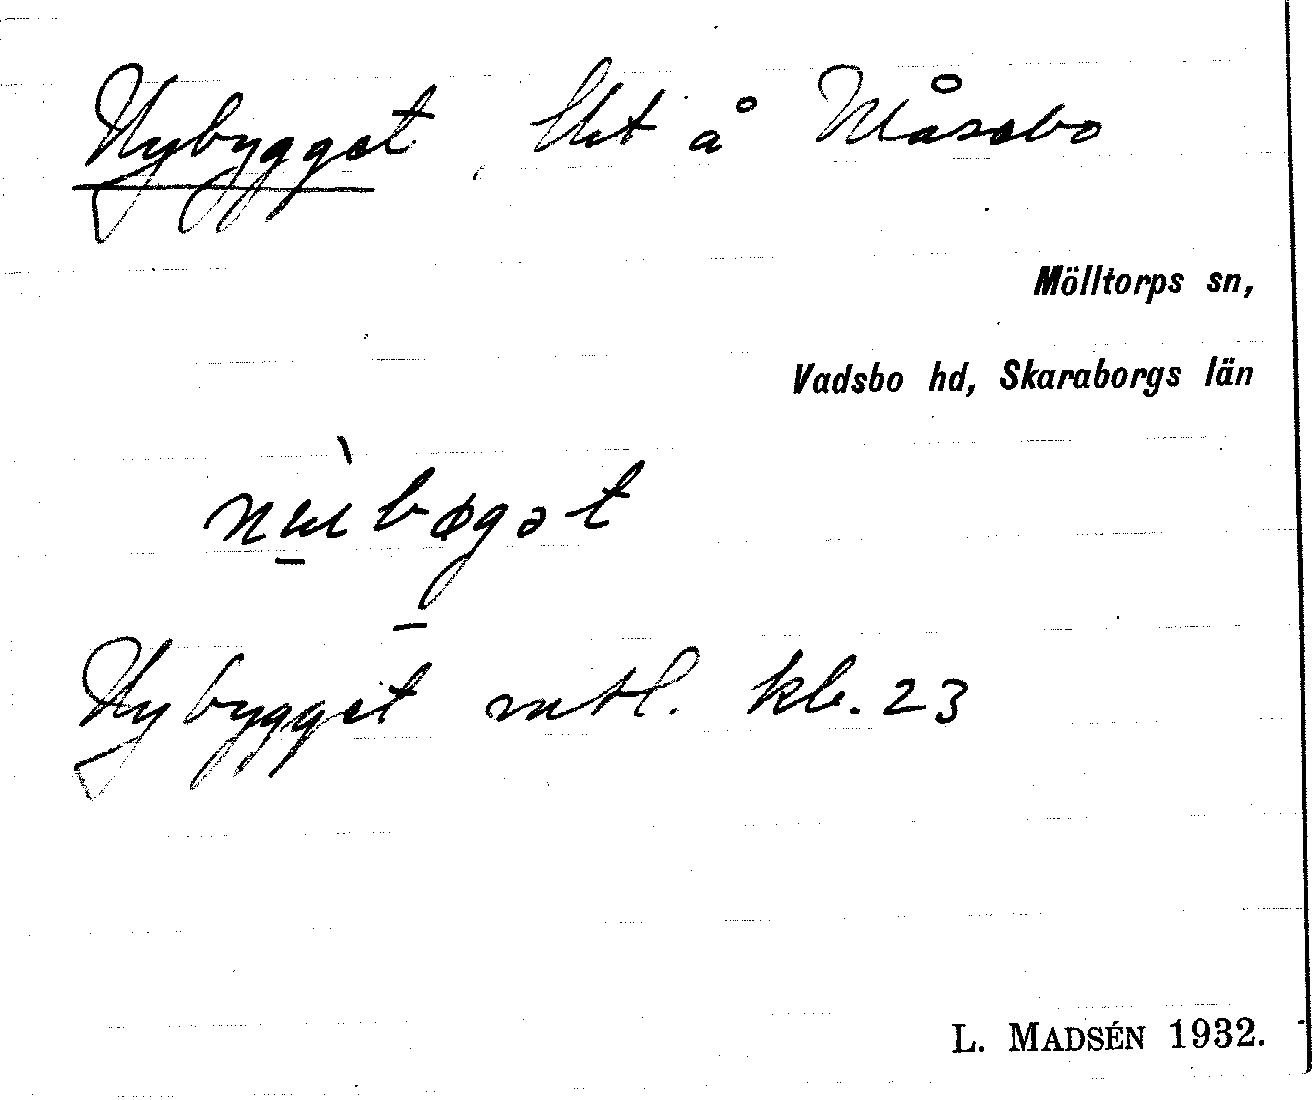 Nybygget, lht å Måsebo
Mölltorps sn,
Vadsbo hd, Skaraborgs län
Nybygget mtl. kb. 23
L. MADSÉN 1932.